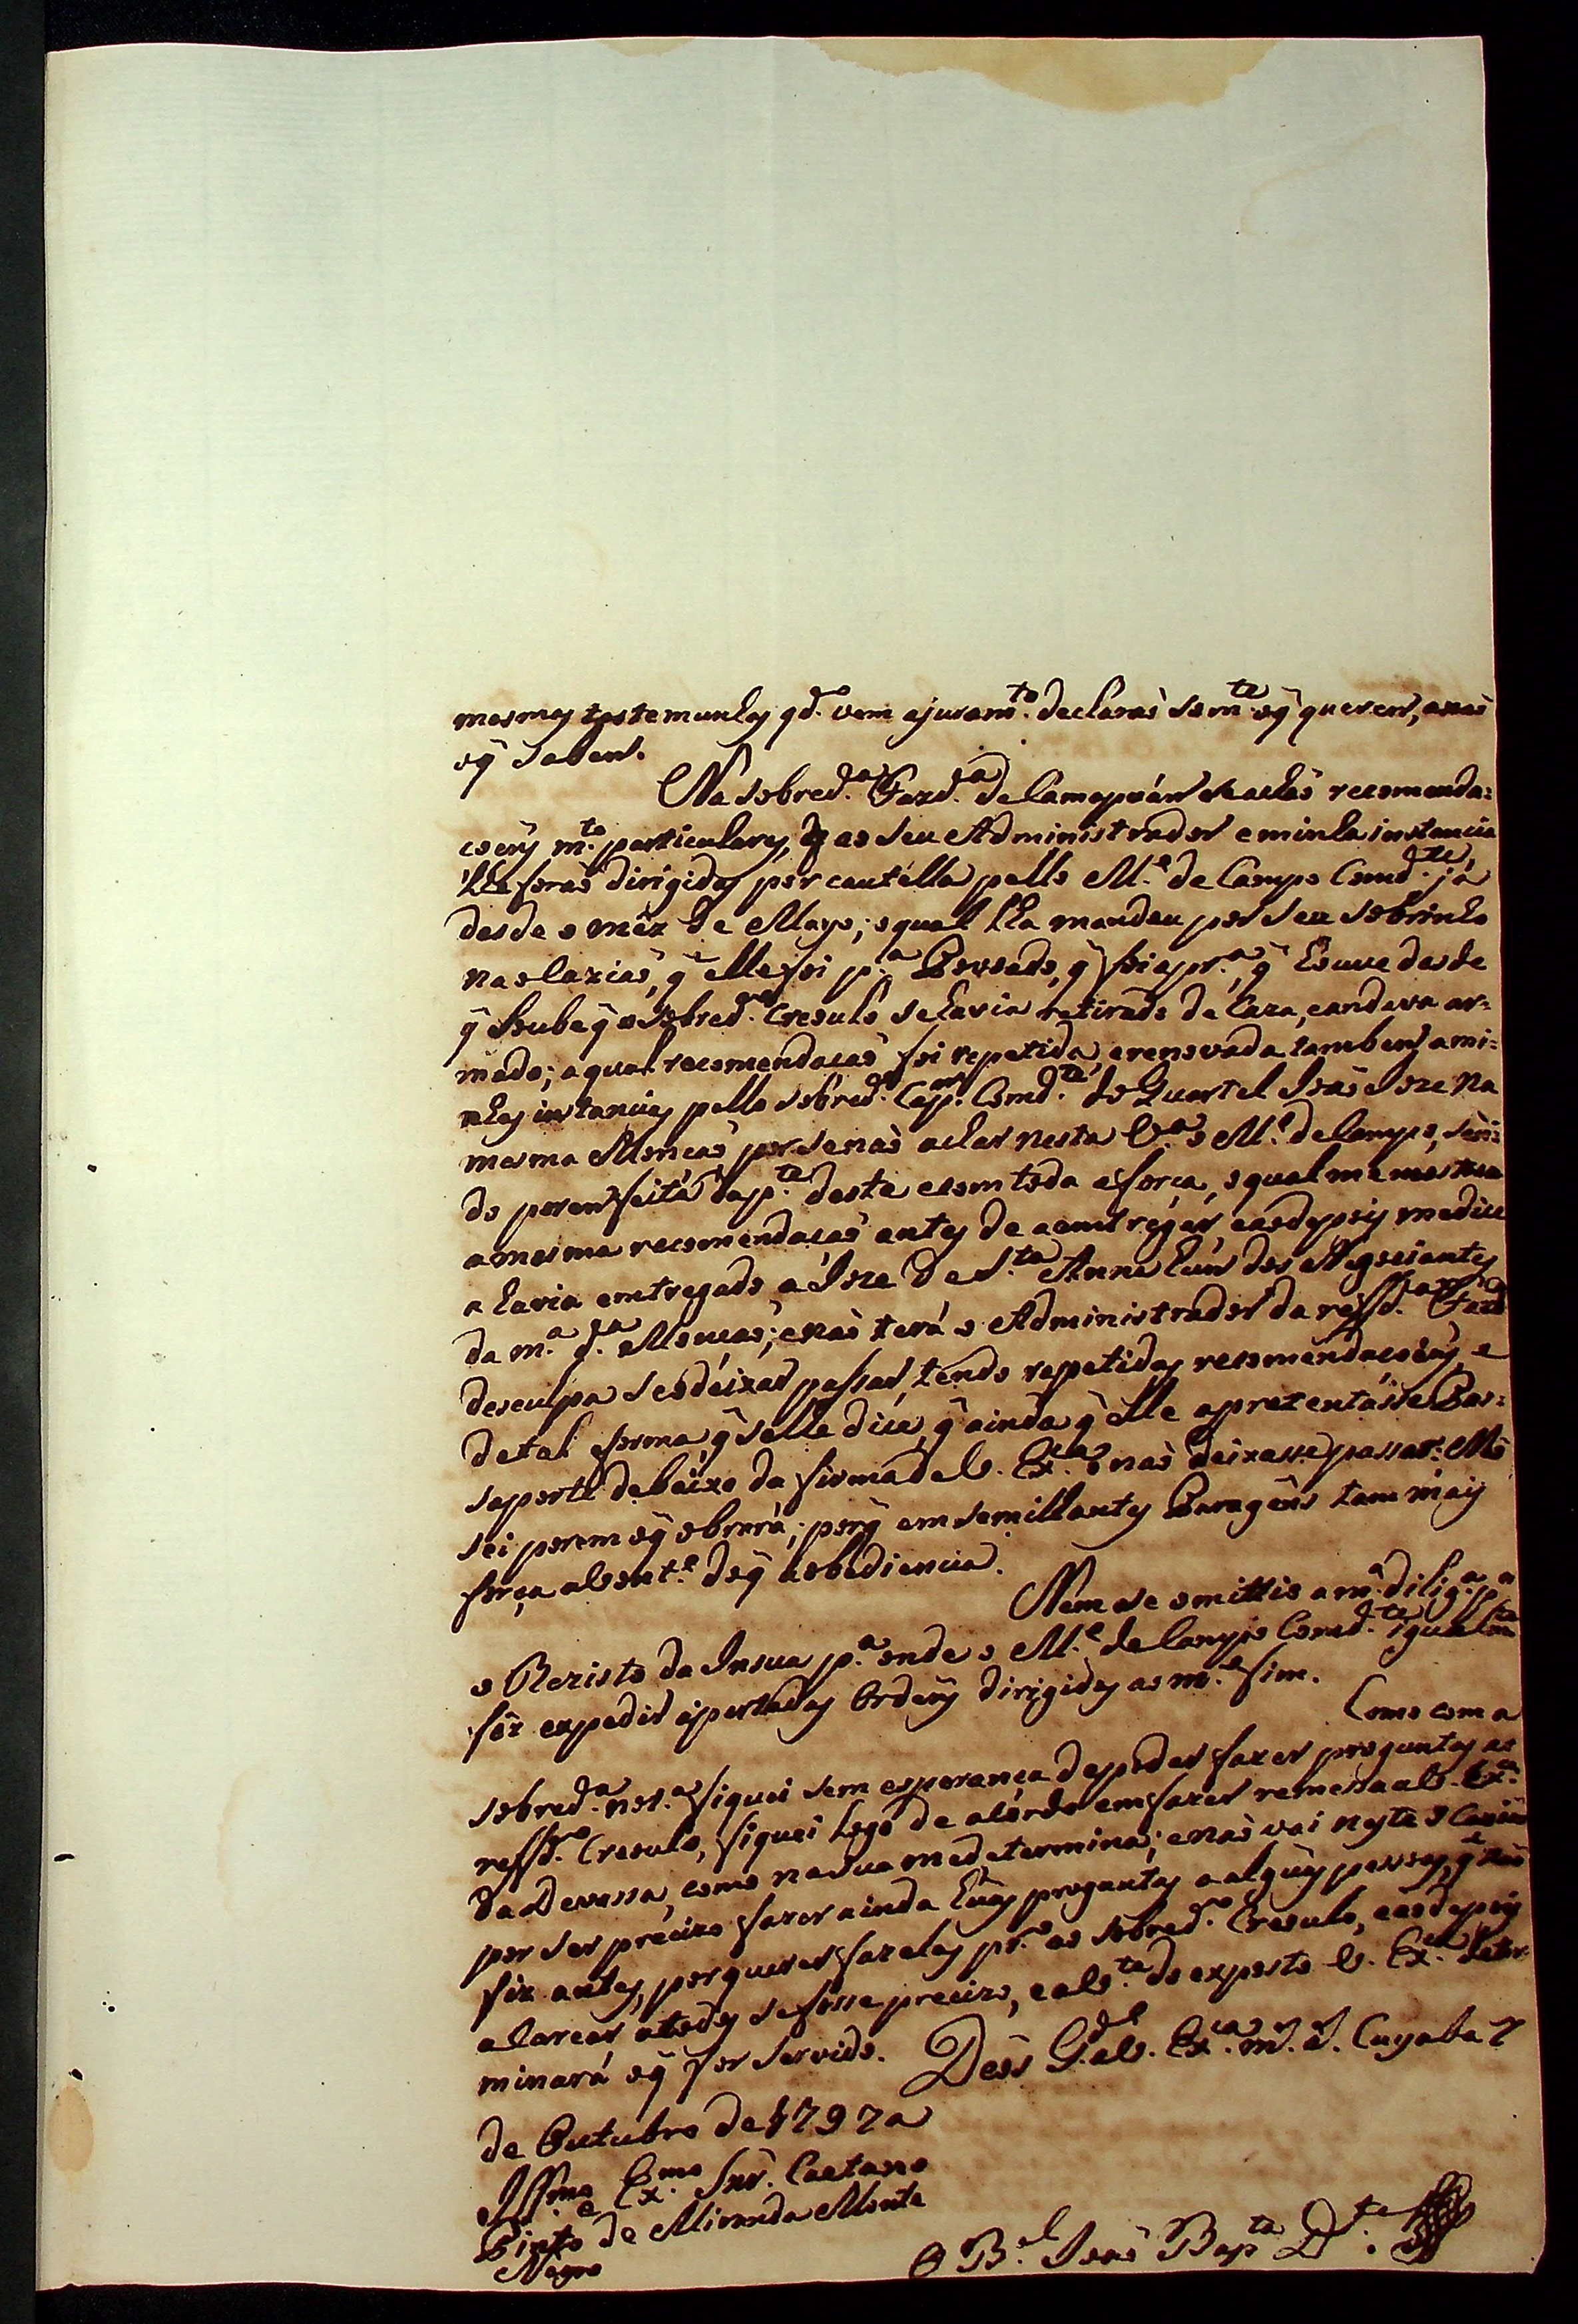 mesmas testemunhas qd.º vem a juram.to declaraõ som.te o q̃ querem, e naõ
o q̃ sabem.
Na sobred.ª Fazd.ª de Camapoán se achaõ recomenda=
coẽns m.to particulares, q̃ ao seu Administrador e minha instancia
lhe foraõ dirigidas por cautélla pello M.e de Campo Comd.te, já
desde o mêz de Mayo; o qual lha mandou por seu sobrinho
na olaziaõ, q̃ elle foi p.ª Povoado, q̃ foi a pr.ª, q̃ houve desde
q̃ soube q̃ o sobred.º Cresulo se havia retirado de Caza, e andava ar=
mado; a qual recomendacaõ foi repetida, e renovada tambem a mi=
nhas instancias pello sobred.º Cap.m Comd.te do Quartel Joaõ Joze na
mesma Monçaõ por se naõ achar nesta V.ª o M.e de Campo, sen=
do porem feita da p.te deste e com toda a força, o qual me mostrou
a mesma recomendacaõ antes de a emtrégar, e ao depois me dice
a havia emtregado a Joze de S.ta Anna hum dos Negociantes
da m.ª d.ª Monçaõ; e naõ terá o Administrador da reffd.ª Fazd.ª
desculpa se o deixar passar, tendo repetidas recomendacoẽns, e
de tal forma, q̃ se lhe dice, q̃ ainda q̃ elle aprezentásse Pas=
saporte debaixo da firma de V. Ex.cia o naõ deixasse passar: Naõ
sei porem o q̃ obrará; porq̃ em semilhantes Paragêns tem mais
força a vont.e do q̃ a obediencia.
Nem se omittio a m.ª dilig.ª p.ª
o Rezisto da Insua p.ª onde o M.e de Campo Comd.te igualm.te
fêz expedir apertadas Ordens dirigidas ao m.º fim.
Como com a
sobred.ª not.ª fiquei sem esperança de poder fazer preguntas ao
reffd.º Cresulo, fiquei logo de acôrdo em fazer remessa a V. Ex.ª
da Devassa, como na sua me determina; e naõ vai neste
por ser precizo fazer ainda huãs preguntas a alguãs pessoas, q̃ naõ
fiz antes, por querer fazelas pr.º ao sobred.º Cresulo, e ao depois
alarear a todas se fosse precizo, e a v.ta do exposto V. Ex.cia deter=
minará o q̃ for servido. Deos G.de a V. Ex.cia m.s a.s Cuyaba 7
de Outubro de 1797a
Illmo. e Ex.mo Snr. Caetano
Pinto de Miranda Monte
Negro
O B.el Joaõ Bap.ta D.te